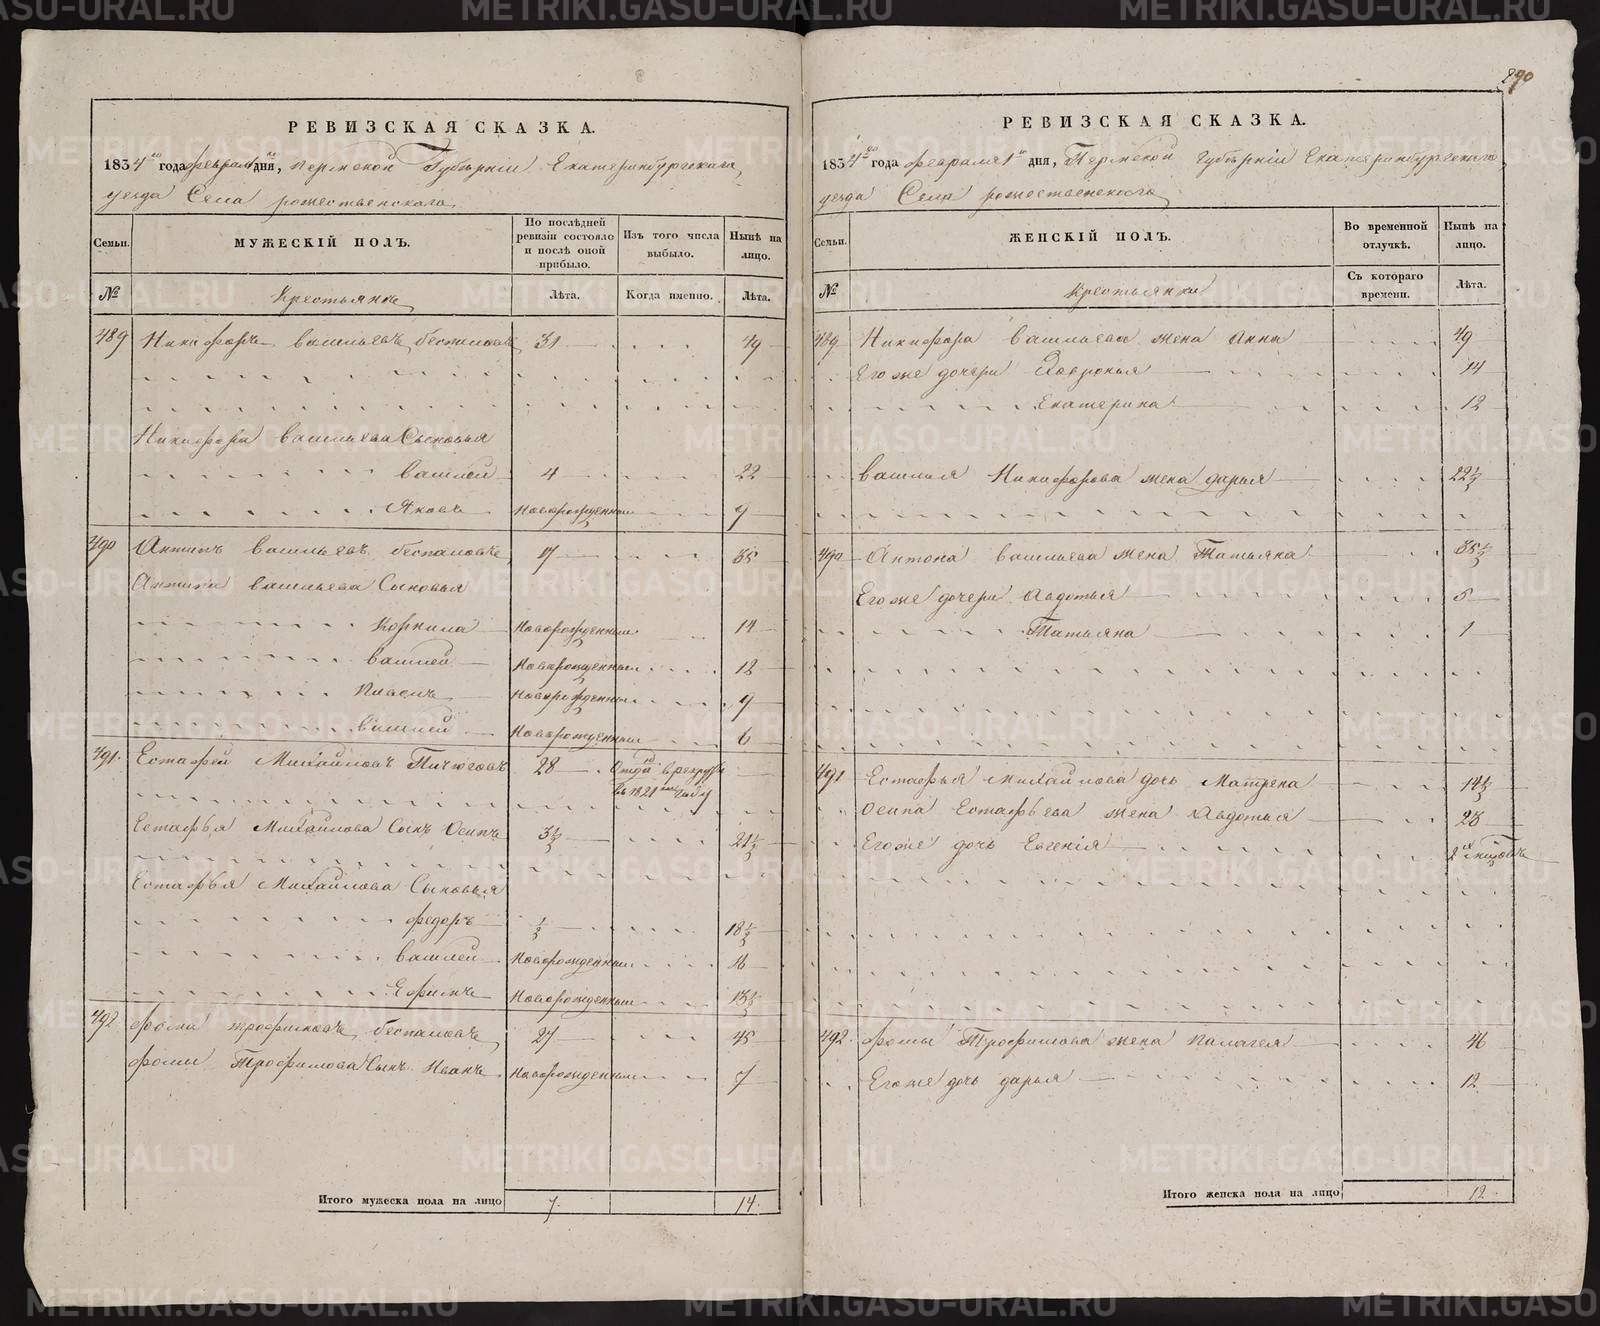 290
РЕВИЗСКАЯ СКАЗКА.
1834 го года февраля 1 го дня, Пермской Губернiи Екатеринбургскаго
уезда Села рожественскаго
Семьи. МУЖЕСКIЙ ПОЛЪ. По послѣдней ревизiи состояло и послѣ оной прибыло. Изъ того числа выбыло. Нынѣ на лицо.
№ Крестьяне Лѣта. Когда именно. Лѣта.
489 Никифоръ васильевъ беспаловъ 31 49
Никифора васильева Сыновья
василей 4 22
Яковъ новорожденный 9
490 Антипъ васильевъ беспаловъ 17 35
Антипа васильева Сыновья
Корнила новорожденный 14
василей новорожденный 12
новорожденный 9
василей новорожденный 6
491 Естафей Михайловъ Пичюговъ 28 Отданъ в рекруты
въ 1821 году
Естафья Михайлова Сынъ Осипъ 3½ 21½
Естафья Михайлова Сыновья
федоръ ½ 18½
василей новорожденный 16
Ефимъ новорожденный 13½
492 фома трофимовъ беспаловъ 27 45
фомы Трофимова Сынъ Иванъ новорожденный 7
Итого мужеска пола на лицо 7 14.
РЕВИЗСКАЯ СКАЗКА.
1834 го года февраля 1 го дня, Пермской губернiи Екатеринбургскаго
уезда Села рожественскаго
Семьи. ЖЕНСКIЙ ПОЛЪ. Во временной отлучкѣ. Нынѣ на лицо.
№ Крестьянки Съ котораго времени. Лѣта.
489 Никифора васильева жена Анна 49
Его же дочери Хавронья 14
Екатерина 12
василья Никифорова жена дарья 22½
490 Антона васильева жена Татьяна 35½
Его же дочери Авдотья 5
Татьяна 1
491 Естафья Михайлова дочь Матрена 14½
Осипа Естафьева жена Авдотья 23
Его же дочь Евгенiя 2
492. фомы Трофимова жена Палагея 46
Его же дочь дарья 12
Итого женска пола на лицо 12.
METRIKI.GASO-URAL.RU